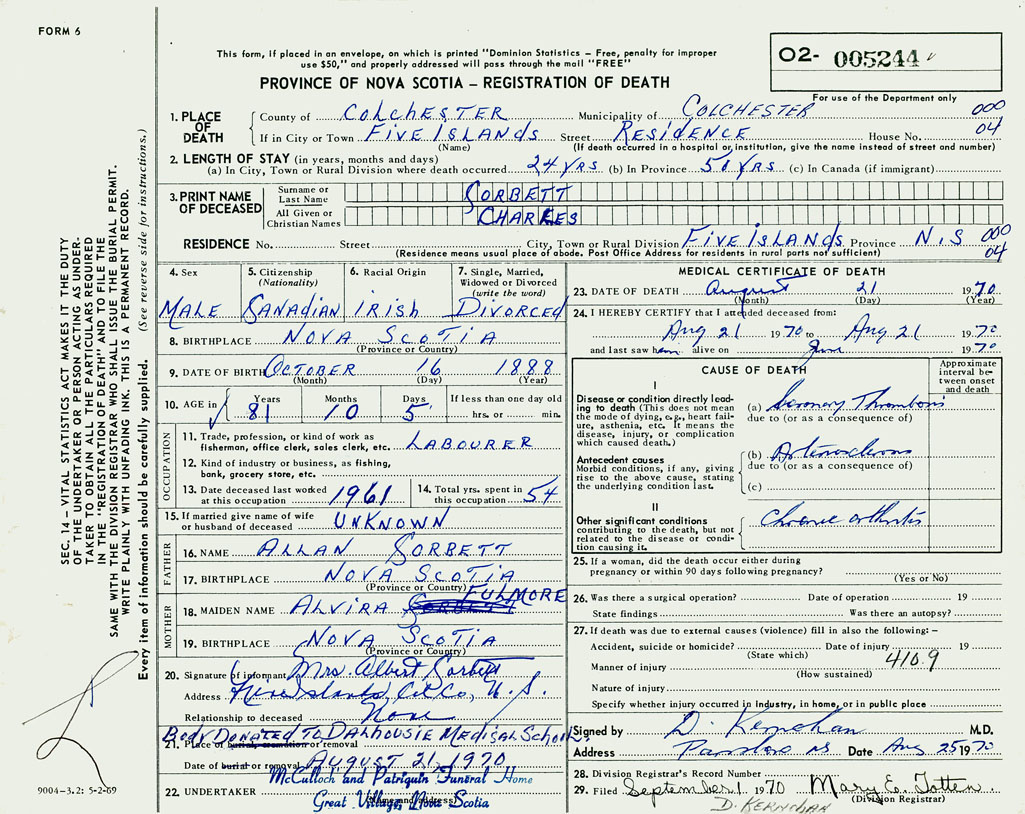 FORM 6
This form, if placed in an envelope, on which is printed "Dominion Statistics – Free, penalty for improper
use $50," and properly addressed will pass through the mail "FREE"
PROVINCE OF NOVA SCOTIA – REGISTRATION OF DEATH
O2- 005244
For use of the Department only
1. PLACE OF DEATH
County of COLCHESTER Municipality of COLCHESTER 000
If in City or Town FIVE ISLANDS Street RESIDENCE House No. 04
(Name) (If death occurred in a hospital or institution, give the name instead of street and number)
2. LENGTH OF STAY (in years, months and days)
(a) In City, Town or Rural Division where death occurred 24 YRS (b) In Province YRS (c) In Canada (if immigrant)
3. PRINT NAME OF DECEASED
Surname or Last Name CORBETT
All Given or Christian Names CHARLES
RESIDENCE No. Street City, Town or Rural Division FIVE ISLANDS Province N.S 000
(Residence means usual place of abode. Post Office Address for residents in rural parts not sufficient) 04
4. Sex
MALE
5. Citizenship (Nationality)
CANADIAN
6. Racial Origin
IRISH
7. Single, Married, Widowed or Divorced (write the word)
DIVORCED
8. BIRTHPLACE NOVA SCOTIA
(Province or Country)
9. DATE OF BIRTH OCTOBER 16 1888
(Month) (Day) (Year)
10. AGE in Years Months Days If less than one day old
81 10 5 hrs. or min.
OCCUPATION
11. Trade, profession, or kind of work as
fisherman, office clerk, sales clerk, etc. LABOURER
12. Kind of industry or business, as fishing,
bank, grocery store, etc.
13. Date deceased last worked
at this occupation 1961
14. Total yrs. spent in
this occupation 54
15. If married give name of wife
or husband of deceased UNKNOWN
FATHER
16. NAME ALLAN CORBETT
17. BIRTHPLACE NOVA SCOTIA
(Province or Country)
MOTHER
18. MAIDEN NAME ALVIRA FULMORE
19. BIRTHPLACE NOVA SCOTIA
(Province or Country)
20. Signature of informant Mrs. Albert Corbett
Address Five Islands, Col Co, N.S.
Relationship to deceased None
BODY DONATED TO DALHOUSIE MEDICAL SCHOOL
21. Place of burial, cremation or removal
Date of burial or removal AUGUST 21, 1970
McCulloch and Patriquin Funeral Home
22. UNDERTAKER Great Village, Nova Scotia
(Name and address)
MEDICAL CERTIFICATE OF DEATH
23. DATE OF DEATH August 21 1970
(Month) (Day) (Year)
24. I HEREBY CERTIFY that I attended deceased from:
Aug 21 1970 to Aug 21 1970
and last saw him alive on June 1970
CAUSE OF DEATH
Approximate interval between onset and death
I
Disease or condition directly leading to death (This does not mean the mode of dying, e.g., heart failure, asthenia, etc. It means the disease, injury, or complication which caused death.)
(a) Coronary Thrombosis
due to (or as a consequence of)
Antecedent causes
Morbid conditions, if any, giving rise to the above cause, stating the underlying condition last.
(b)
due to (or as a consequence of)
(c)
II
Other significant conditions
contributing to the death, but not related to the disease or condition causing it.
Chronic arthritis
25. If a woman, did the death occur either during
pregnancy or within 90 days following pregnancy?
(Yes or No)
26. Was there a surgical operation? Date of operation 19
State findings Was there an autopsy?
27. If death was due to external causes (violence) fill in also the following: –
Accident, suicide or homicide? Date of injury 19
(State which) 410.9
Manner of injury
(How sustained)
Nature of injury
Specify whether injury occurred in industry, in home, or in public place
Signed by D. Kernohan M.D.
Address Parrsboro NS Date Aug 25 1970
28. Division Registrar's Record Number
29. Filed September 1 1970 Mary E. Totten
(Division Registrar)
D. KERNOHAN
SEC. 14 – VITAL STATISTICS ACT MAKES IT THE DUTY
OF THE UNDERTAKER OR PERSON ACTING AS UNDER-
TAKER TO OBTAIN ALL THE PARTICULARS REQUIRED
IN THE "REGISTRATION OF DEATH" AND TO FILE THE
SAME WITH THE DIVISION REGISTRAR WHO SHALL ISSUE THE BURIAL PERMIT.
WRITE PLAINLY WITH UNFADING INK. THIS IS A PERMANENT RECORD.
Every item of information should be carefully supplied. (See reverse side for instructions.)
9004–3.2: 5-2-69